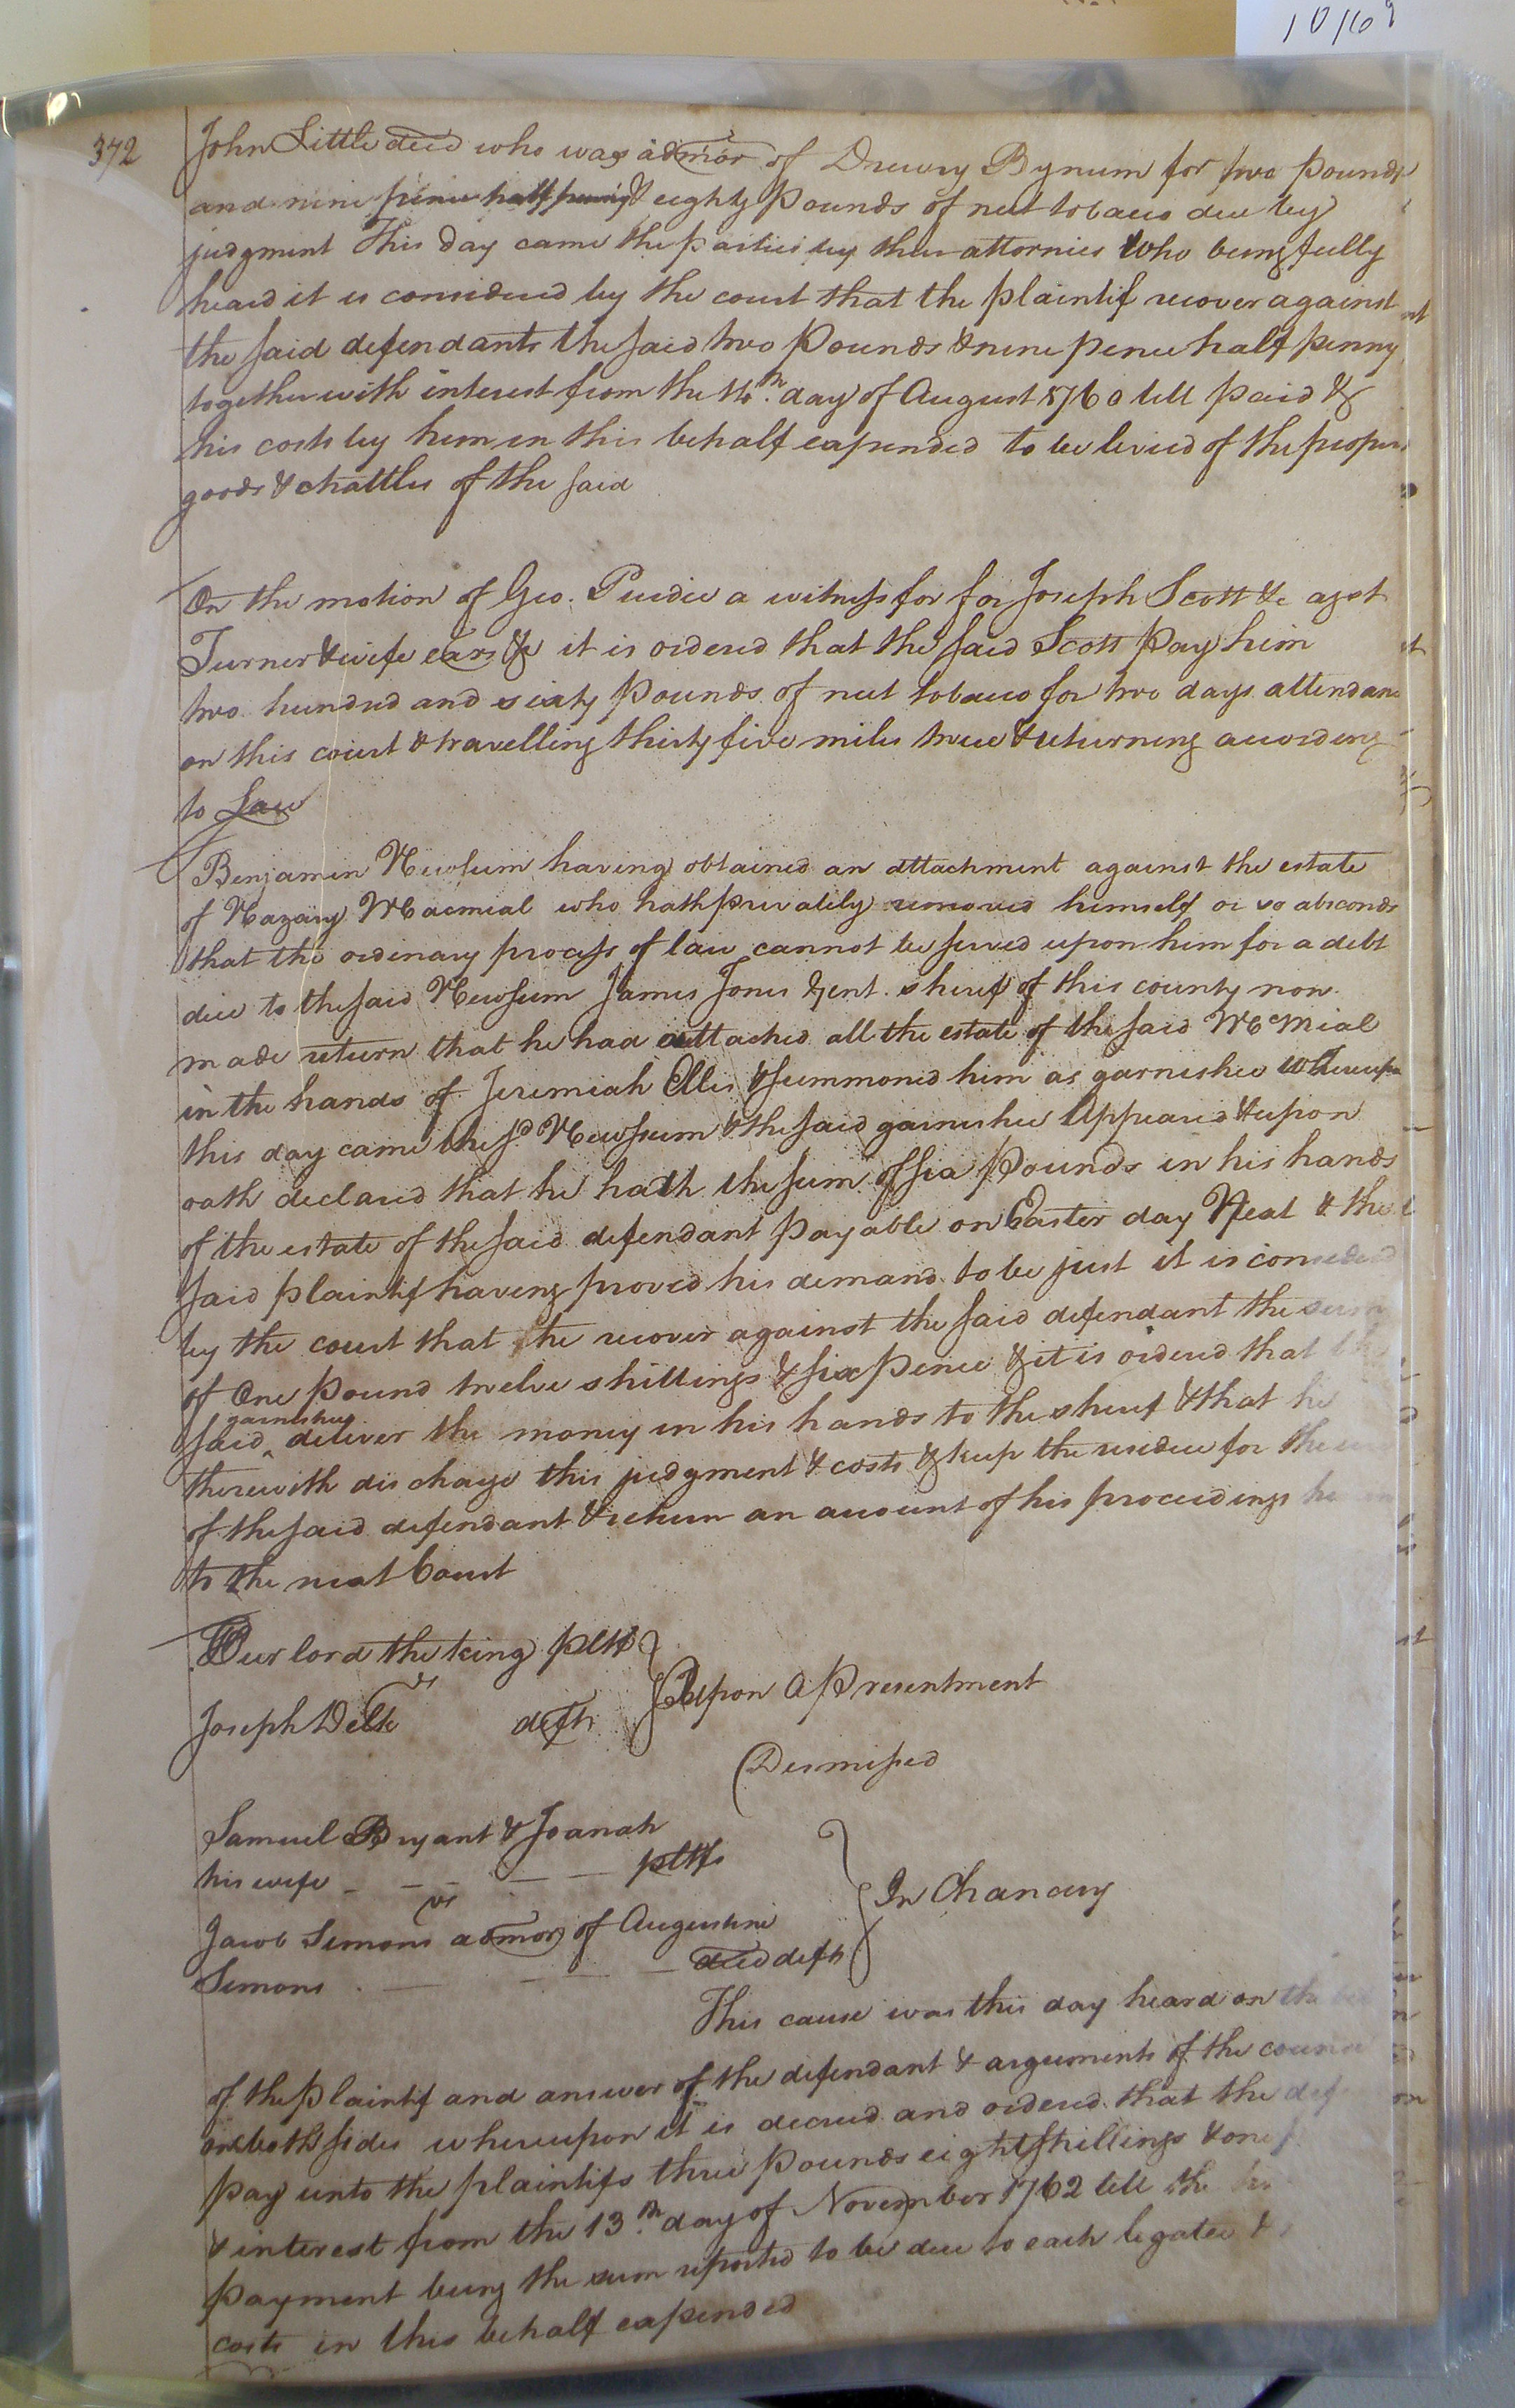 10/69
372
John Little decd who was admor of Drewry Bynum for two pounds
and nine pence half penny & eighty pounds of nett tobacco due by
judgment This day came the parties by their attornies who being fully
heard it is considered by the court that the plaintif recover against
the said defendants the said two Pounds & nine pence half penny
together with interest from the day of August 1760 till paid &
his costs by him in this behalf expended to be levied of the proper
goods & chattles of the said
On the motion of Geo. Purdie a witness for for Joseph Scott &c agst
Turner & wife exrs &c it is ordered that the said Scott Pay him
two hundred and sixty pounds of nett tobacco for two days attendance
on this court & travelling thirty five miles twice & returning according
to Law
Benjamin Newsum having obtained an attachment against the estate
of Nazary Macmial who hath privately removed himself or so absconds
that the ordinary process of law cannot be served upon him for a debt
due to the said Newsum James Jones Gent. sherif of this county now
made return that he had attached all the estate of the said McMial
in the hands of Jeremiah Ellis & summoned him as garnishee whereupon
this day came the sd Newsum & the said garnishee appeared & upon
oath declared that he hath the sum of six pounds in his hands
of the estate of the said defendant payable on Easter day Next & the
said plaintif having proved his demand to be just it is considered
by the court that he recover against the said defendant the sum
of One pound twelve shillings & six pence & it is ordered that the
said garnishee deliver the money in his hands to the sherif & that he
therewith discharge this judgment & costs & keep the residue for the use
of the said defendant & return an account of his proceedings herein
to the next Court
Our lord the king pltf
vs
Upon a Presentment
Joseph Delk deft
Dismissed
Samuel Bryant & Joanah
his wife - - - - pltfs
vs
In Chancery
Jacob Simons admor of Augustine
Simons - - - decd deft
This cause was this day heard on the bill
of the plaintif and answer of the defendant & arguments of the council
on both sides whereupon it is decreed and ordered that the
pay unto the plaintifs three pounds eight shillings & one
& interest from the 13th day of November 1762 till the
payment being the sum reported to be due to each legatee &
costs in this behalf expended